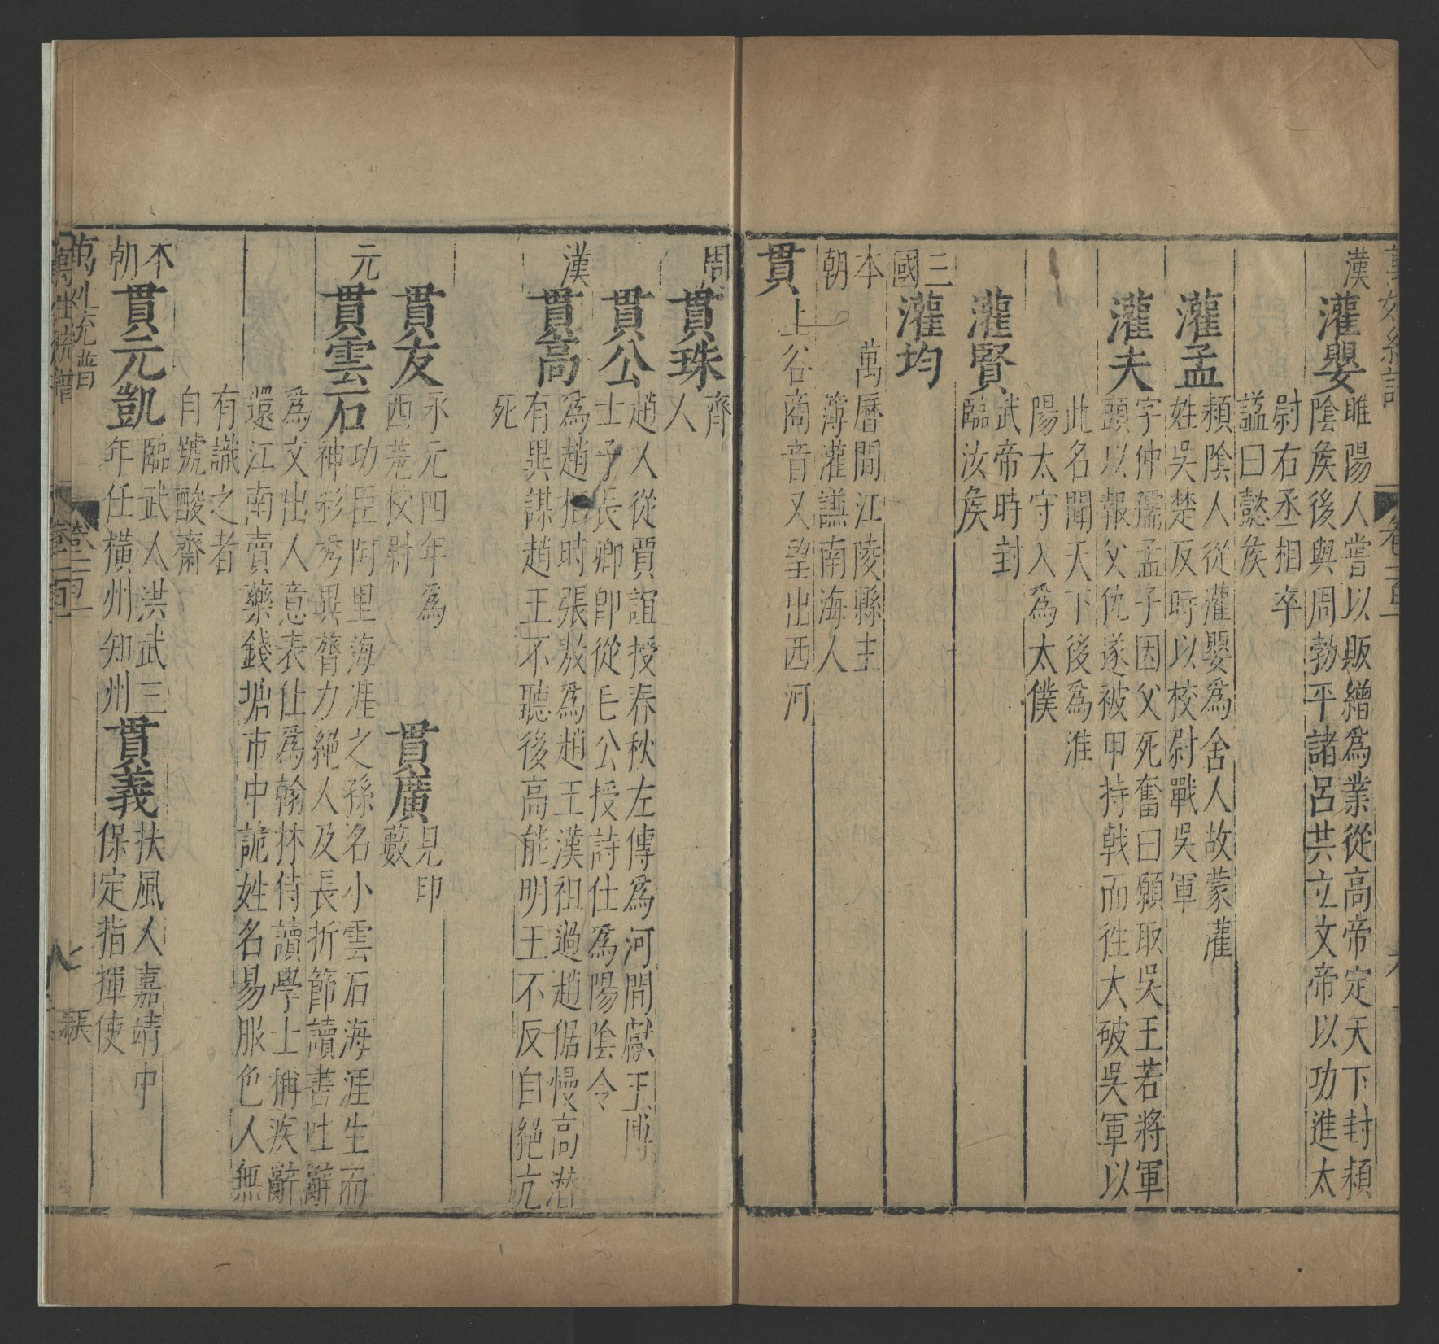 漢
灌嬰
睢陽人嘗以販繒為業從高帝定天下封潁
陰侯後與周勃平諸呂共立文帝以功進太
尉右丞相卒
諡曰懿侯
灌孟
潁陰人從灌嬰為舍人故蒙灌
姓吳楚反時以校尉戰吳軍
灌夫
字仲孺孟子因父死奮曰願取吳王若將軍
頭以報父仇遂被甲持戟而往大破吳軍以
此名聞天下後為淮
陽太守入為太僕
灌賢
武帝時封
臨汝侯
三國
灌均
本朝
萬曆間江陵縣主
簿灌謙南海人
貫
上谷商音又望出西河
周
貫珠
齊
人
貫公
趙人從賈誼授春秋左傳為河間獻王博
士子長卿即從毛公授詩仕為陽陰令
漢
貫高
為趙相時張敖為趙王漢祖過趙倨慢高潛
有異謀趙王不聽後高能明王不反自絕亢
死
貫友
永元四年為
西羗校尉
貫廣
見印
藪
元
貫雲石
功臣阿里海涯之孫名小雲石海涯生而
神彩秀異膂力絕人及長折節讀書吐辭
為文出人意表仕為翰林侍讀學士稱疾辭
還江南賣藥錢塘市中詭姓名易服色人無
有識之者
自號酸齋
本朝
貫元凱
臨武人洪武三
年任橫州知州
貫義
扶風人嘉靖中
保定指揮使
萬姓統譜